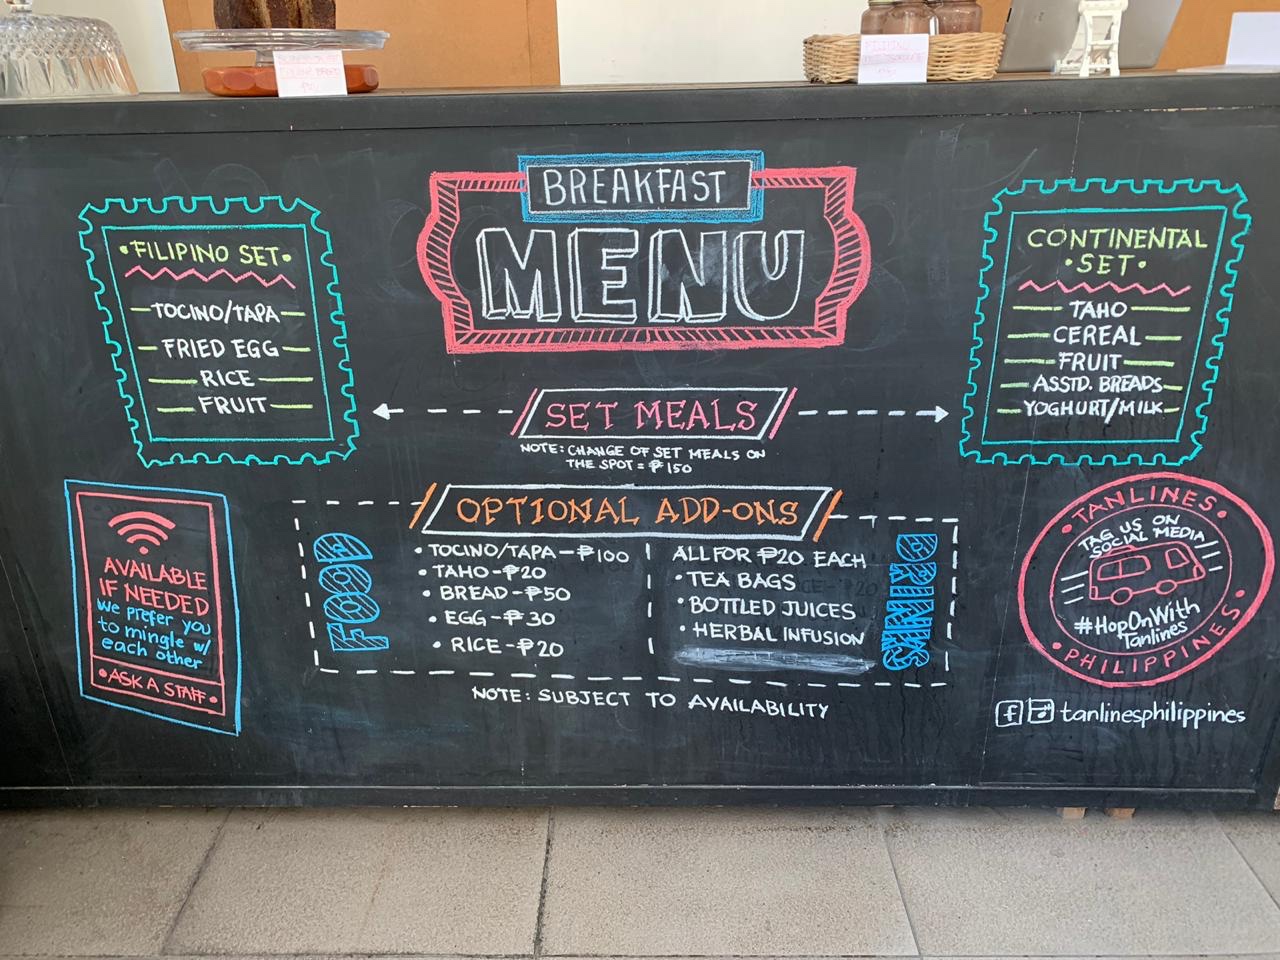 BREAKFAST
MENU
•FILIPINO SET•
TOCINO/TAPA
FRIED EGG
RICE
FRUIT
SET MEALS
NOTE: CHANGE OF SET MEALS ON
THE SPOT = ₱150
CONTINENTAL
•SET•
TAHO
CEREAL
FRUIT
ASSTD. BREADS
YOGHURT/MILK
AVAILABLE
IF NEEDED
We prefer you
to mingle w/
each other
•ASK A STAFF•
OPTIONAL ADD-ONS
FOOD
• TOCINO/TAPA - ₱100
• TAHO - ₱20
• BREAD - ₱50
• EGG - ₱30
• RICE - ₱20
ALL FOR ₱20 EACH
• TEA BAGS
• BOTTLED JUICES
• HERBAL INFUSION
DRINKS
NOTE: SUBJECT TO AVAILABILITY
• TANLINES •
TAG US ON
SOCIAL MEDIA
#HopOnWith
Tanlines
• PHILIPPINES •
f tanlinesphilippines